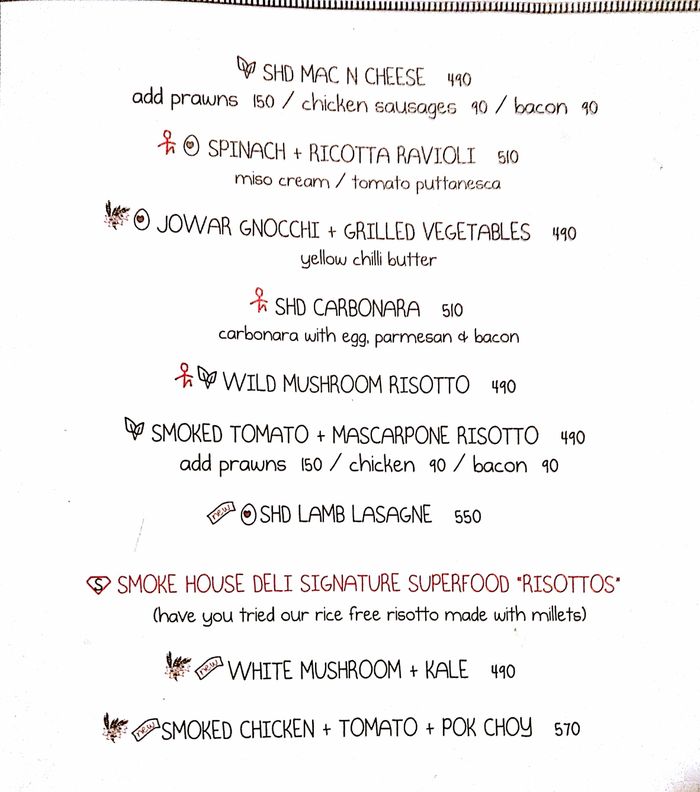 SHD MAC N CHEESE 490
add prawns 150 / chicken sausages 90 / bacon 90
SPINACH + RICOTTA RAVIOLI 510
miso cream / tomato puttanesca
JOWAR GNOCCHI + GRILLED VEGETABLES 490
yellow chilli butter
SHD CARBONARA 510
carbonara with egg, parmesan & bacon
WILD MUSHROOM RISOTTO 490
SMOKED TOMATO + MASCARPONE RISOTTO 490
add prawns 150 / chicken 90 / bacon 90
new SHD LAMB LASAGNE 550
S SMOKE HOUSE DELI SIGNATURE SUPERFOOD "RISOTTOS"
(have you tried our rice free risotto made with millets)
new WHITE MUSHROOM + KALE 490
new SMOKED CHICKEN + TOMATO + POK CHOY 570